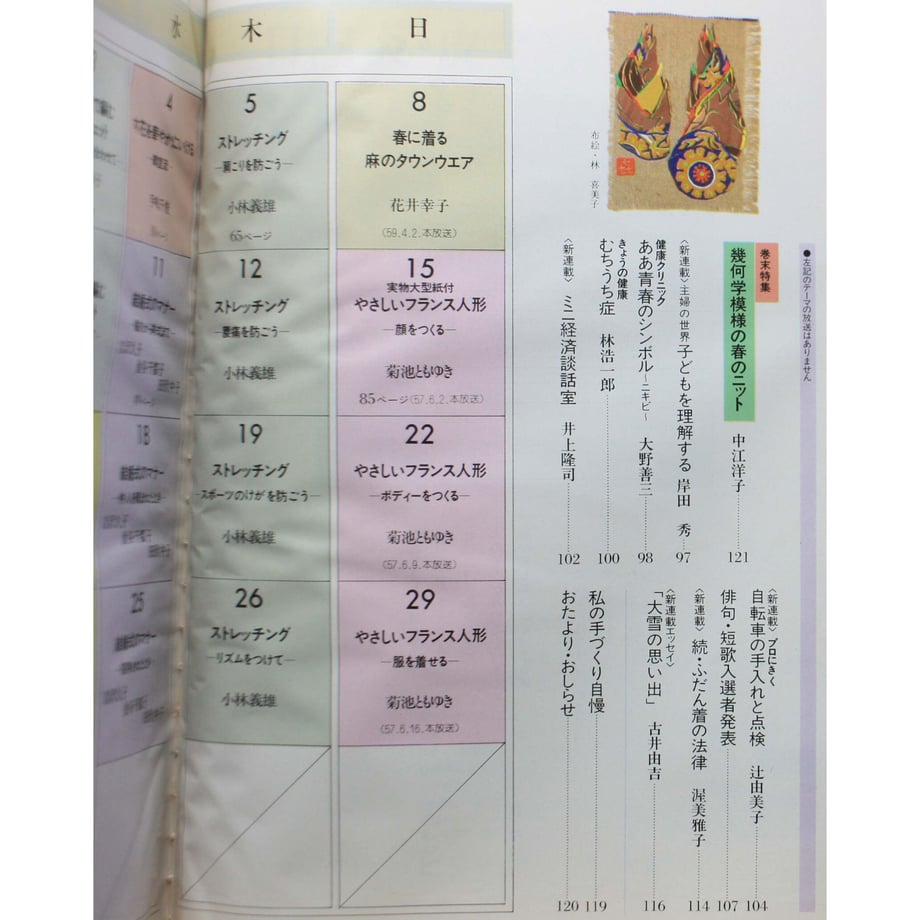 水
木
日
4
11
18
25
5
ストレッチング
―肩こりを防ごう―
小林義雄
65ページ
8
春に着る
麻のタウンウエア
花井幸子
(59.4.2.本放送)
12
ストレッチング
―腰痛を防ごう―
小林義雄
15
実物大型紙付
やさしいフランス人形
―顔をつくる―
菊池ともゆき
85ページ(57.6.2.本放送)
19
ストレッチング
―スポーツのけがを防ごう―
小林義雄
22
やさしいフランス人形
―ボディーをつくる―
菊池ともゆき
(57.6.9.本放送)
26
ストレッチング
―リズムをつけて―
小林義雄
29
やさしいフランス人形
―服を着せる―
菊池ともゆき
(57.6.16.本放送)
布絵・林 喜美子
●左記のテーマの放送はありません
巻末特集
幾何学模様の春のニット 中江洋子……121
〈新連載・主婦の世界〉子どもを理解する 岸田 秀……97
健康クリニック
ああ青春のシンボル～ニキビ～ 大野善三……98
きょうの健康
むちうち症 林浩一郎……100
〈新連載〉ミニ経済談話室 井上隆司……102
〈新連載〉プロにきく
自転車の手入れと点検 辻由美子……104
俳句・短歌入選者発表……107
〈新連載〉続・ふだん着の法律 渥美雅子……114
〈新連載エッセイ〉
「大雪の思い出」 古井由吉……116
私の手づくり自慢……119
おたより・おしらせ……120